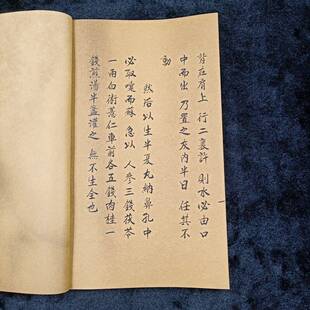 背在肩上 行二里許 則水必由口
中而出 乃置之灰内半日 任其不
動
然后以生半夏丸納鼻孔中
必取嚏而蘇 急以 人參三錢茯苓
一兩白術薏仁車前各五錢肉桂一
錢煎湯半盞灌之 無不生全也